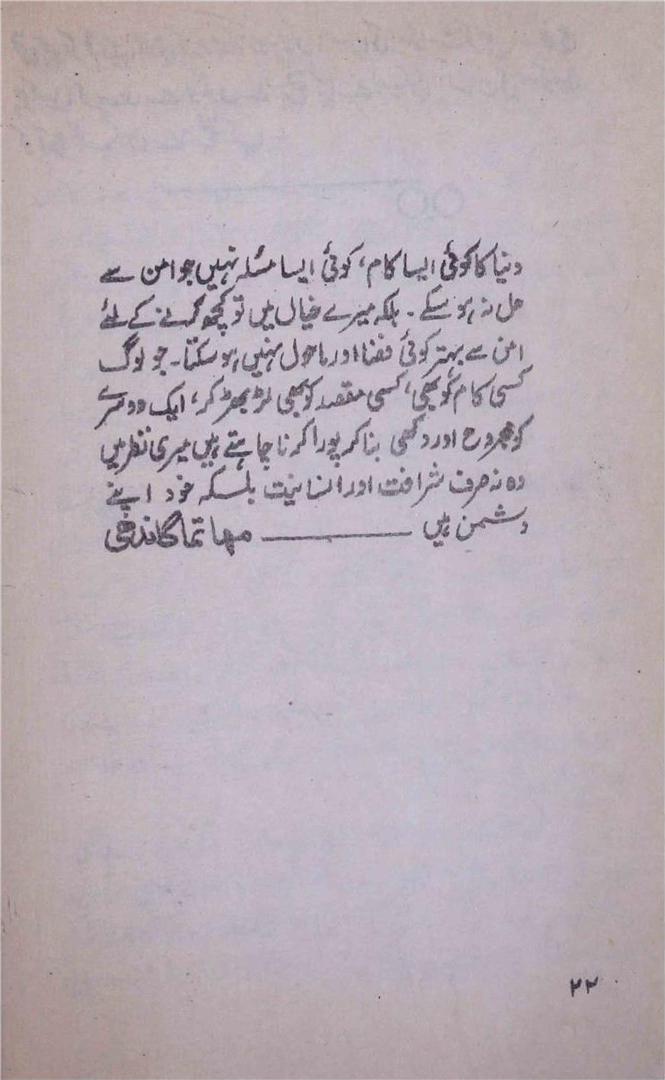 دنیا کا کوئی ایسا کام، کوئی ایسا مسئلہ نہیں جو امن سے
حل نہ ہو سکے۔ بلکہ میرے خیال میں تو کچھ کرنے کے لئے
امن سے بہتر کوئی فضا اور ماحول نہیں ہو سکتا۔ جو لوگ
کسی کام کو بھی، کسی مقصد کو بھی لڑ بھڑ کر، ایک دوسرے
کو مجروح اور دکھی بنا کر پورا کرنا چاہتے ہیں میری نظر میں
وہ نہ صرف شرافت اور انسانیت بلکہ خود اپنے
دشمن ہیں ــــــــــ مہاتما گاندھی
۲۲